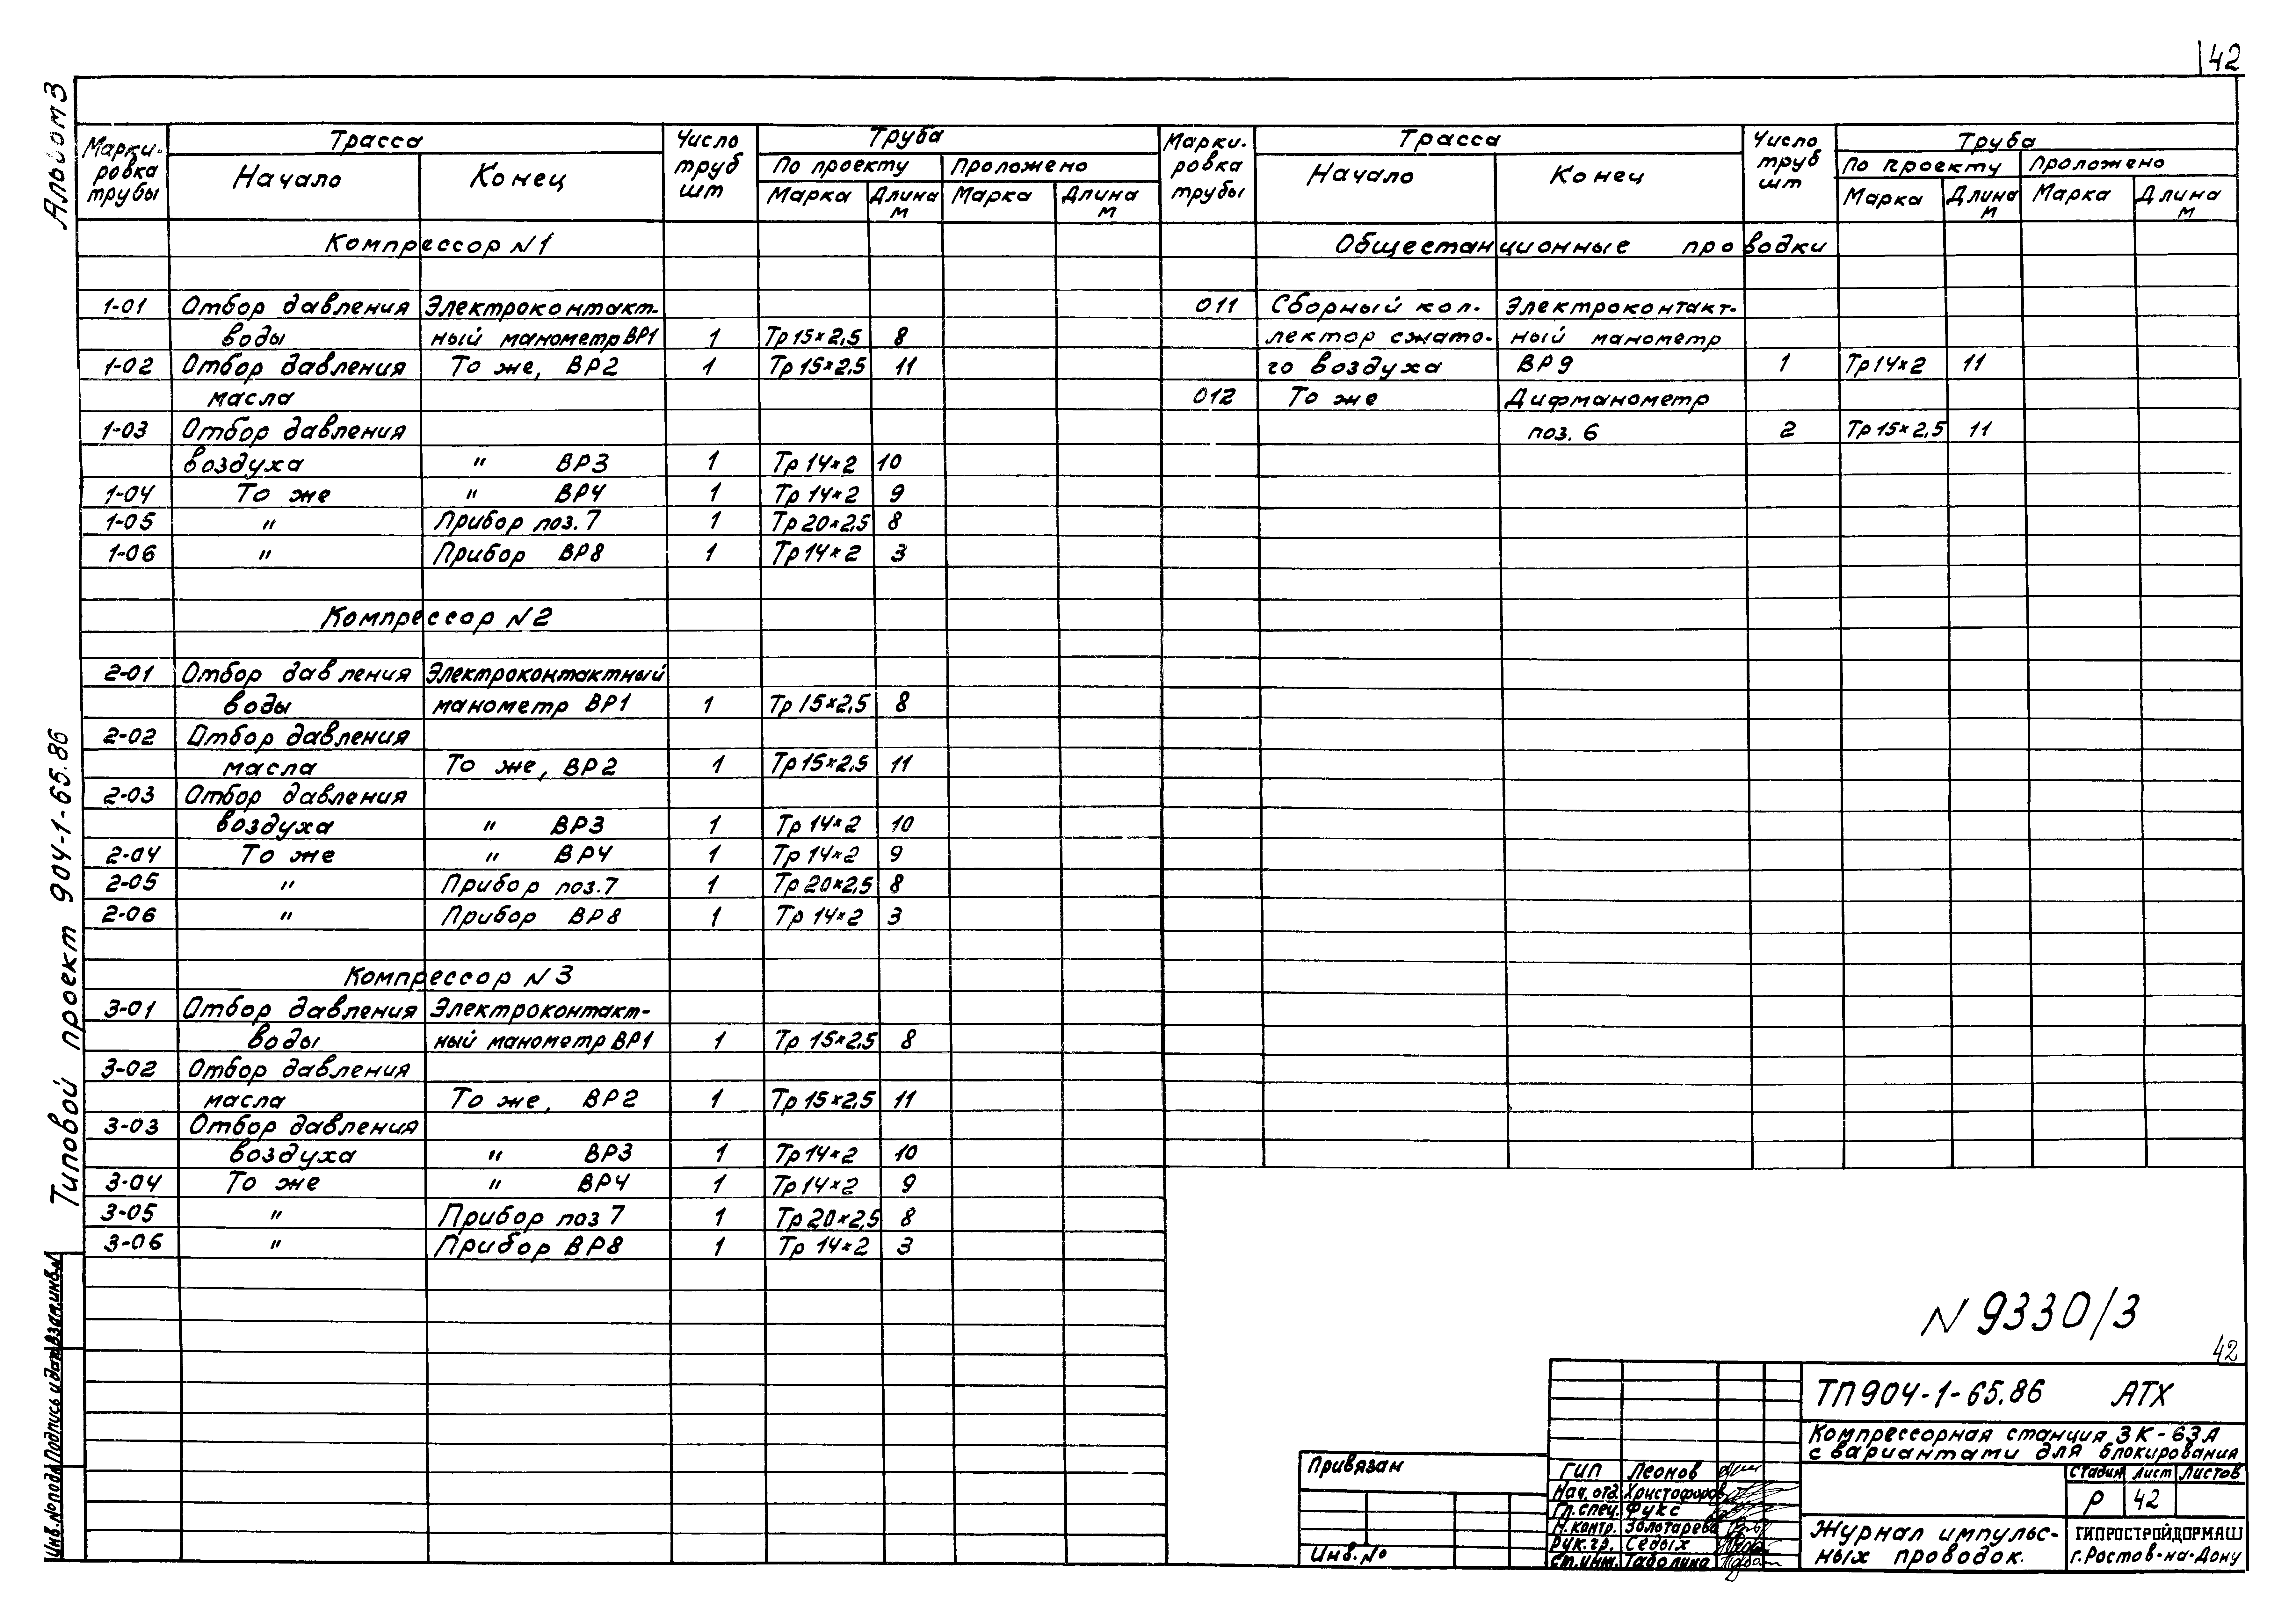 42
Альбом 3
Типовой проект 904-1-65.86
Марки- Трасса Число Труба
ровка Начало Конец труб По проекту Проложено
трубы шт Марка Длина м Марка Длина м
Компрессор N1
1-01 Отбор давления Электроконтакт-
воды ный манометр ВР1 1 Тр 15×2,5 8
1-02 Отбор давления То же, ВР2 1 Тр 15×2,5 11
масла
1-03 Отбор давления
воздуха " ВР3 1 Тр 14×2 10
1-04 То же " ВР4 1 Тр 14×2 9
1-05 " Прибор поз. 7 1 Тр 20×2,5 8
1-06 " Прибор ВР8 1 Тр 14×2 3
Компрессор N2
2-01 Отбор давления Электроконтактный
воды манометр ВР1 1 Тр 15×2,5 8
2-02 Отбор давления
масла То же, ВР2 1 Тр 15×2,5 11
2-03 Отбор давления
воздуха " ВР3 1 Тр 14×2 10
2-04 То же " ВР4 1 Тр 14×2 9
2-05 " Прибор поз. 7 1 Тр 20×2,5 8
2-06 " Прибор ВР8 1 Тр 14×2 3
Компрессор N3
3-01 Отбор давления Электроконтакт-
воды ный манометр ВР1 1 Тр 15×2,5 8
3-02 Отбор давления
масла То же, ВР2 1 Тр 15×2,5 11
3-03 Отбор давления
воздуха " ВР3 1 Тр 14×2 10
3-04 То же " ВР4 1 Тр 14×2 9
3-05 " Прибор поз 7 1 Тр 20×2,5 8
3-06 " Прибор ВР8 1 Тр 14×2 3
Марки- Трасса Число Труба
ровка Начало Конец труб По проекту Проложено
трубы шт Марка Длина м Марка Длина м
Общестанционные проводки
011 Сборный кол- Электроконтакт-
лектор сжато- ный манометр
го воздуха ВР9 1 Тр 14×2 11
012 То же Дифманометр
поз. 6 2 Тр 15×2,5 11
N 9330/3
42
ТП904-1-65.86 АТХ
Компрессорная станция 3К-63А
с вариантами для блокирования
Стадия Лист Листов
Р 42
Журнал импульс-
ных проводок.
ГИПРОСТРОЙДОРМАШ
г. Ростов-на-Дону
Привязан
Инв. №
ГИП Леонов
Нач. отд. Христофоров
Гл. спец. Фукс
Н. контр. Золотарева
Рук. гр. Седых
Ст. инж. Гаполина
Инв. № подл. Подпись и дата Взам. инв. №